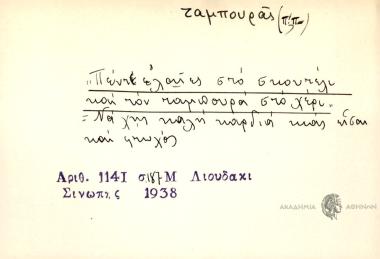 ταμπουρᾶς (π.π.)
"Πέντε ἐλαῖες στὸ σκουτέλι
καὶ τὸν ταμπουρᾶ στὸ χέρι.
= Νά χῃ καλὴ καρδιὰ κιἂς εἶσαι
καὶ φτωχός
Αριθ. 1141 σ.187 Μ Λιουδακι
Σινωπης 1938
ΑΚΑΔΗΜΙΑ ΑΘΗΝΩΝ